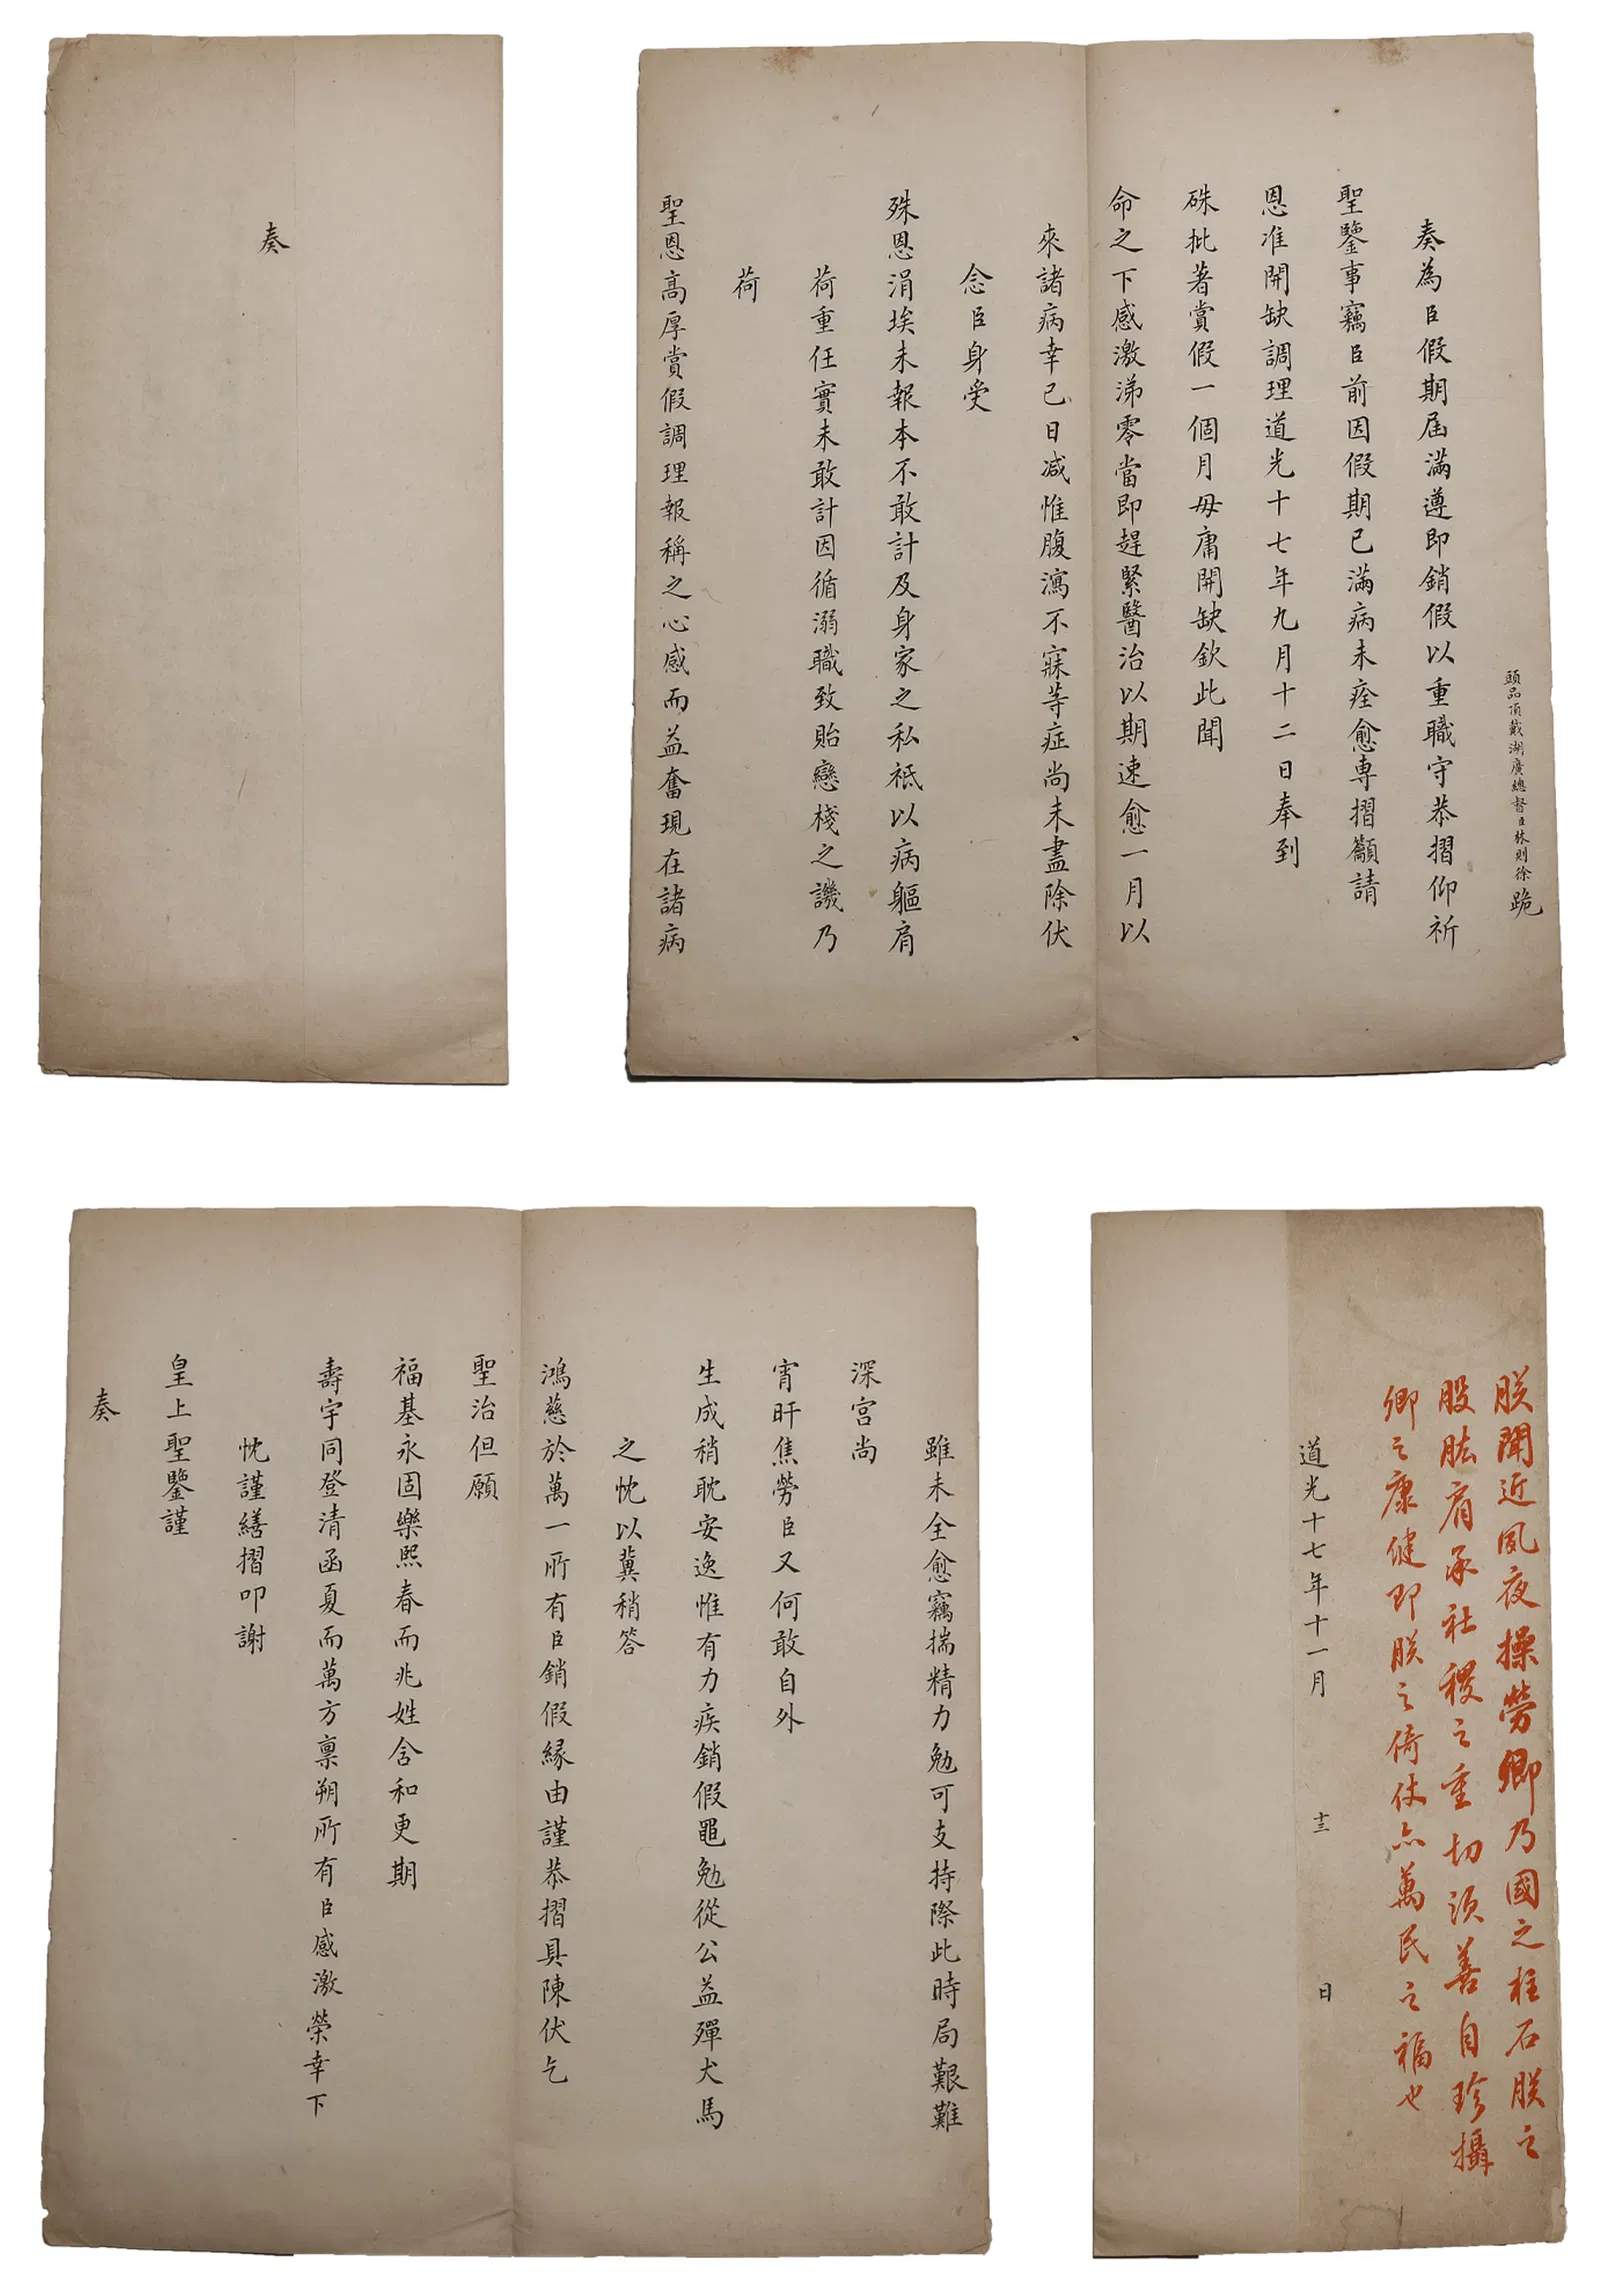 奏
頭品頂戴湖廣總督臣林則徐跪
奏為臣假期屆滿遵即銷假以重職守恭摺仰祈
聖鑒事竊臣前因假期已滿病未痊愈專摺籲請
恩准開缺調理道光十七年九月十二日奉到
硃批著賞假一個月毋庸開缺欽此聞
命之下感激涕零當即趕緊醫治以期速愈一月以
來諸病幸已日減惟腹瀉不寐等症尚未盡除伏
念臣身受
殊恩涓埃未報本不敢計及身家之私祇以病軀肩
荷重任實未敢計因循溺職致貽戀棧之譏乃
荷
聖恩高厚賞假調理報稱之心感而益奮現在諸病
雖未全愈竊揣精力勉可支持際此時局艱難
深宮尚
宵旰焦勞臣又何敢自外
生成稍耽安逸惟有力疾銷假黽勉從公益殫犬馬
之忱以冀稍答
鴻慈於萬一所有臣銷假緣由謹恭摺具陳伏乞
聖治但願
福基永固樂熙春而兆姓含和更期
壽宇同登清函夏而萬方稟朔所有臣感激榮幸下
忱謹繕摺叩謝
皇上聖鑒謹
奏
朕聞近夙夜操勞卿乃國之柱石朕之
股肱肩承社稷之重切須善自珍攝
卿之康健即朕之倚仗亦萬民之福也
道光十七年十一月 十三 日